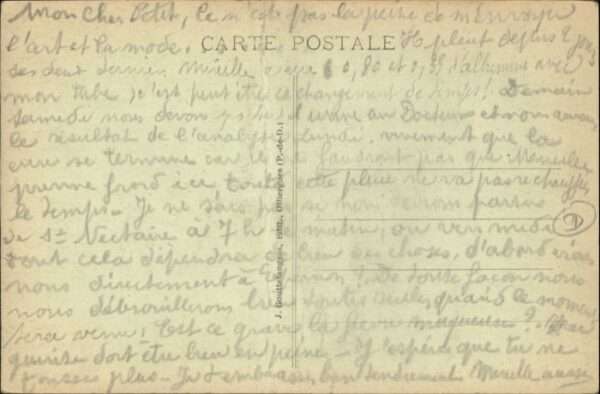 Mon cher Petit, ce n'est pas la peine de m'envoyer
l'art et la mode.
CARTE POSTALE
Il pleut depuis 2 jours
ces deux derniers Mireille a eu 0,80 et 0,35 d'albumine avec
mon tube, c'est peut être ce changement de temps! Demain
samedi nous devons au Docteur et nous aurons
le résultat de l'analyse lundi, vivement que la
cure se termine car il ne faudrait pas que Mireille
prenne froid ici, toute cette pluie ne va pas réchauffer
le temps. Je ne sais pas si nous devons partir
de St Nectaire à 7 h du matin, ou vers midi
tout cela dépendra de bien des choses, d'abord irons
nous directement à ? De toute façon nous
nous débrouillerons bien toutes seules quand le moment
sera venu! Est ce grave la fièvre muqueuse?
doit être bien en peine. J'espère que tu ne
tousses plus. Je t'embrasse bien tendrement Mireille aussi
J. Gouttefangeas, édit., Olliergues (P.-de-D.).